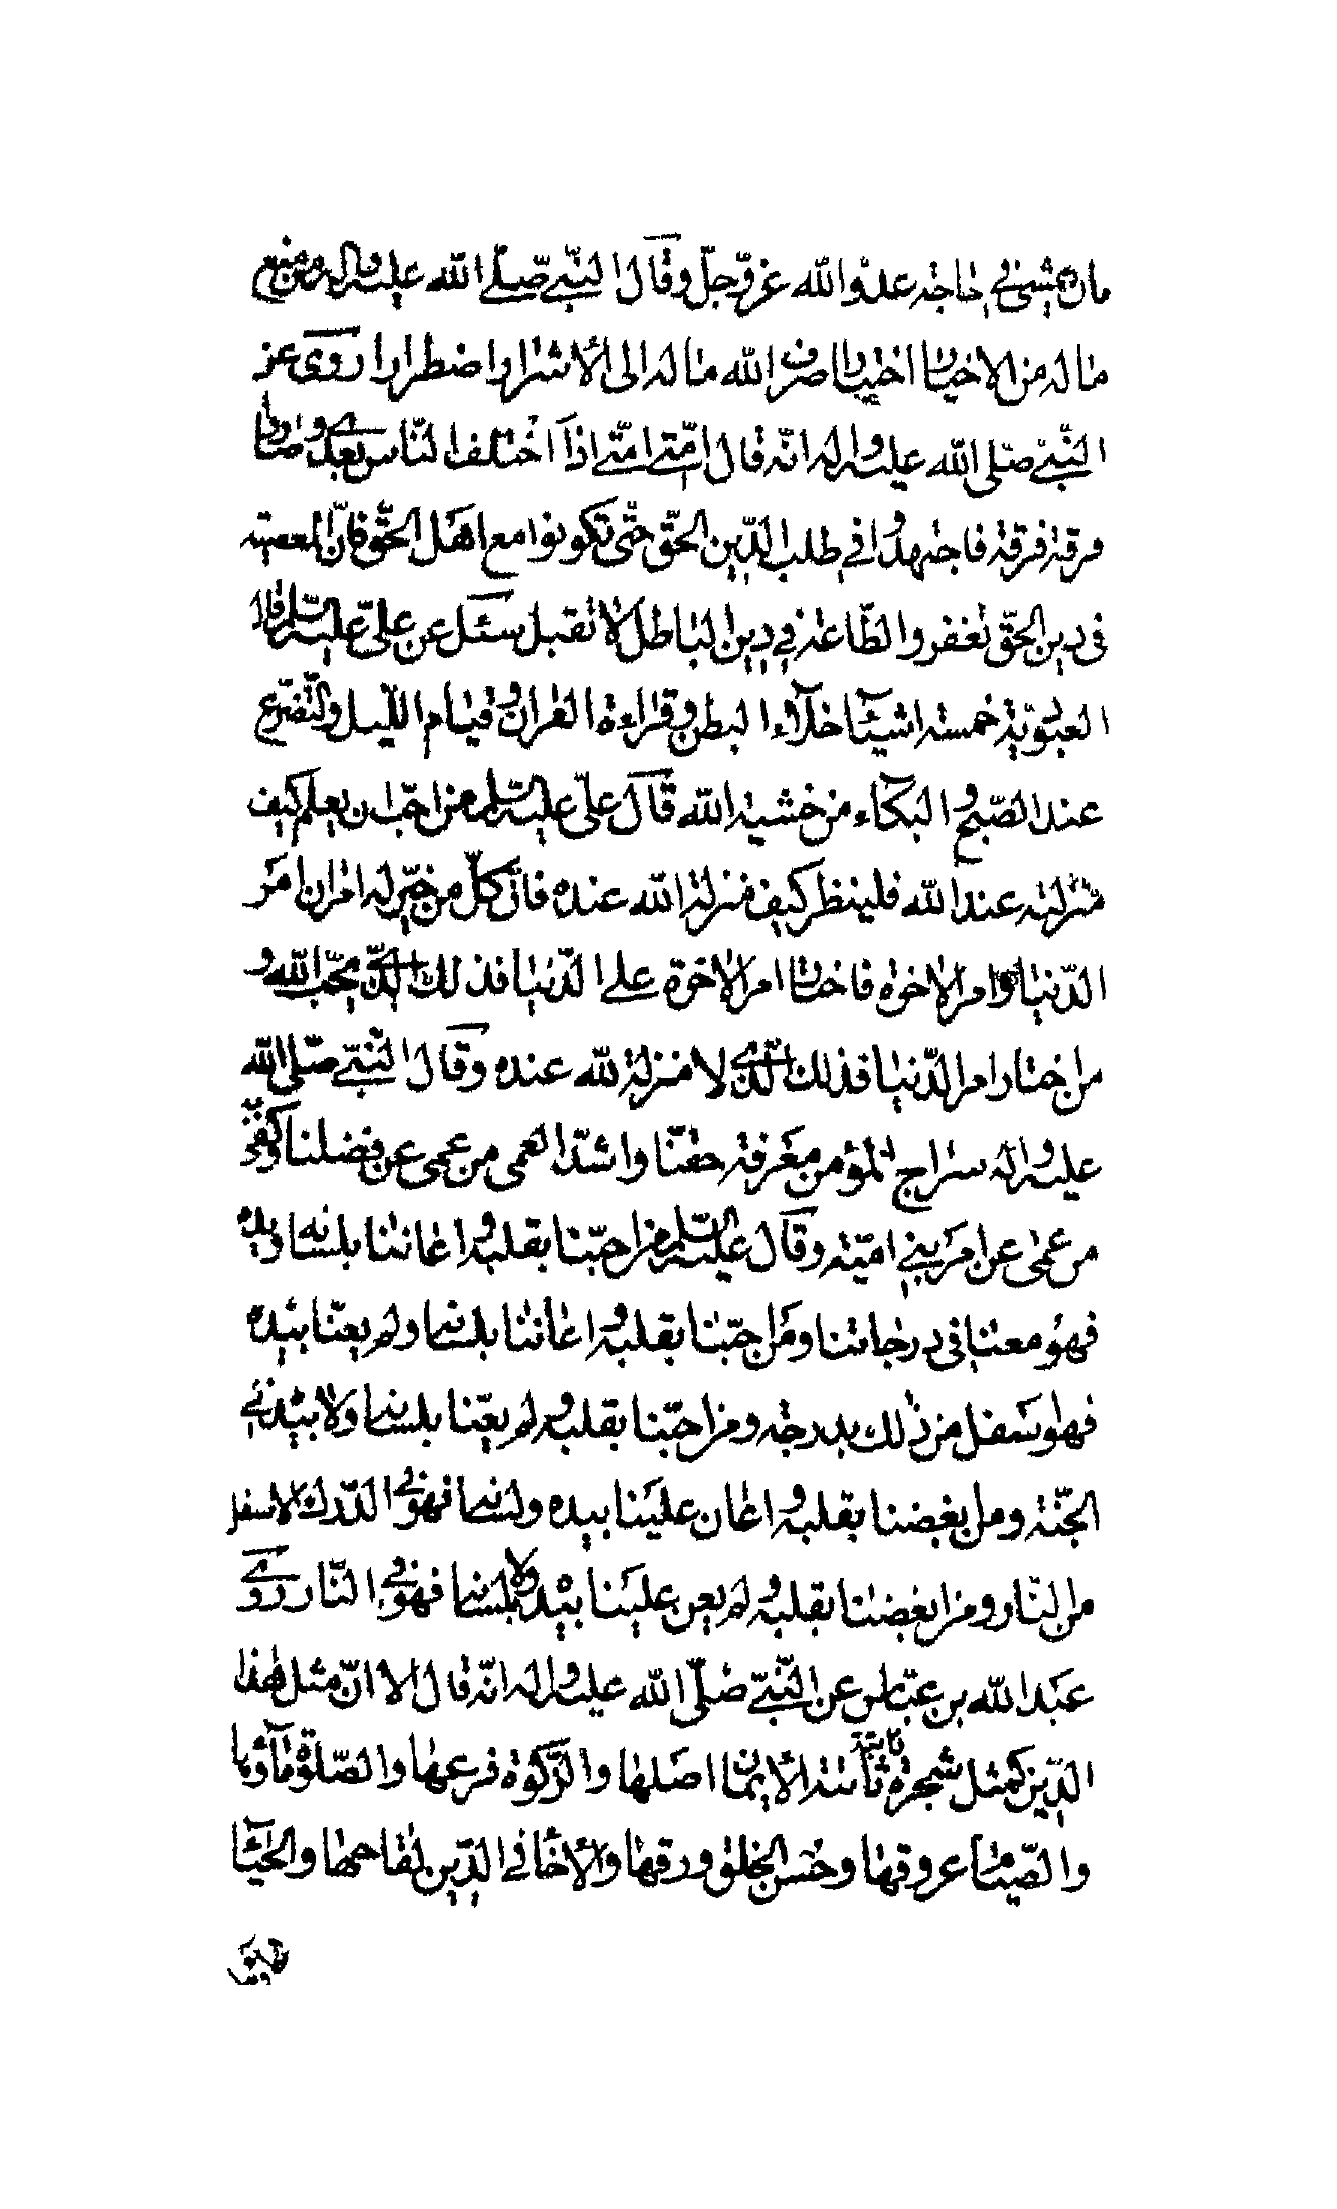 مان يمشي في حاجة عدوّ الله عزّ وجلّ وقال النبيّ صلّى الله عليه واله من منع
ماله من الاخيار اختيارا صرف الله ماله الى الأشرار اضطرارا روى عن
النبيّ صلّى الله عليه واله انّه قال امّتي امّتي اذا اختلف النّاس بعدي وصاروا
فرقة فرقة فاجتهدوا في طلب الدّين الحقّ حتّى تكونوا مع اهل الحقّ فانّ المعصية
في دين الحقّ تغفر والطّاعة في دين الباطل لا تقبل سئل عن عليّ عليه السّلم قال
العبوديّة خمسة اشيآء خلآء البطن وقراءة القران وقيام اللّيل والتّضرّع
عند الصّبح والبكآء من خشية الله قال عليّ عليه السّلم من احبّ ان يعلم كيف
منزلته عند الله فلينظر كيف منزلة الله عنده فانّ كلّ من خيّر له امران امر
الدّنيا وامر الاخرة فاختار امر الاخرة على الدّنيا فذلك الّذي يحبّ الله و
من اختار امر الدّنيا فذلك الّذي لا منزلة لله عنده وقال النّبيّ صلّى الله
عليه واله سراج المؤمن معرفة حقّنا واشدّ العمى من عمى عن فضلنا وكفى
من عمى عن امر بيني اميّة وقال عليه السّلم من احبّنا بقلبه واعاننا بلسانه ويده
فهو معنا في درجاتنا ومن احبّنا بقلبه واعاننا بلسانه ولم يعنّا بيده
فهو اسفل من ذلك بدرجة ومن احبّنا بقلبه ولم يعنّا بلسانه ولا بيده في
الجنّة ومن بغضنا بقلبه واعان علينا بيده ولسانه فهو في الدّرك الاسفل
من النّار ومن ابغضنا بقلبه ولم يعن علينا بيده ولا بلسانه فهو في النّار روى
عبد الله بن عبّاس عن النّبيّ صلّى الله عليه واله انّه قال الا انّ مثل هذا
الدّين كمثل شجرة ثابتة الأيمان اصلها والزّكوة فرعها والصّلوة مآؤها
والصّيام عروقها وحسن الخلق ورقها والأخآ في الدّين لقاحها والحيآ